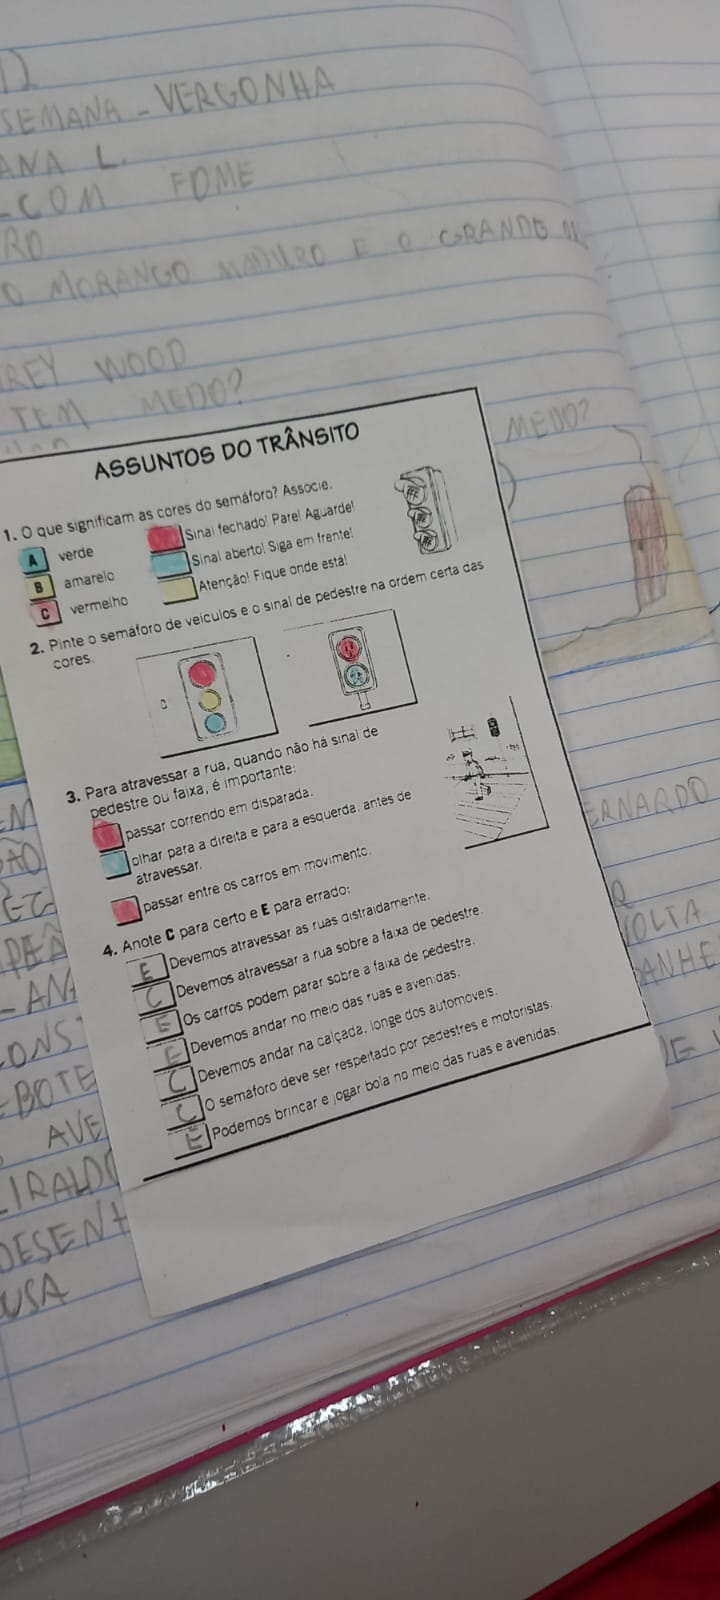 SEMANA - VERGONHA
ANA L.
-COM FOME
RO
O MORANGO MADURO E O GRANDE
REY WOOD
TEM MEDO?
MEDO?
ASSUNTOS DO TRÂNSITO
1. O que significam as cores do semáforo? Associe.
A verde
B amarelo
C vermelho
Sinal fechado! Pare! Aguarde!
Sinal aberto! Siga em frente!
Atenção! Fique onde está!
2. Pinte o semáforo de veículos e o sinal de pedestre na ordem certa das
cores.
3. Para atravessar a rua, quando não há sinal de
pedestre ou faixa, é importante:
passar correndo em disparada.
olhar para a direita e para a esquerda, antes de
atravessar.
passar entre os carros em movimento.
4. Anote C para certo e E para errado:
E Devemos atravessar as ruas distraidamente.
C Devemos atravessar a rua sobre a faixa de pedestre.
E Os carros podem parar sobre a faixa de pedestre.
E Devemos andar no meio das ruas e avenidas.
C Devemos andar na calçada, longe dos automóveis.
C O semáforo deve ser respeitado por pedestres e motoristas.
E Podemos brincar e jogar bola no meio das ruas e avenidas.
ERNARDO
VOLTA
ANHE
E
ÃO
PEÃ
- AN
ONS
BOTE
AVE
IRALDO
DESENH
USA